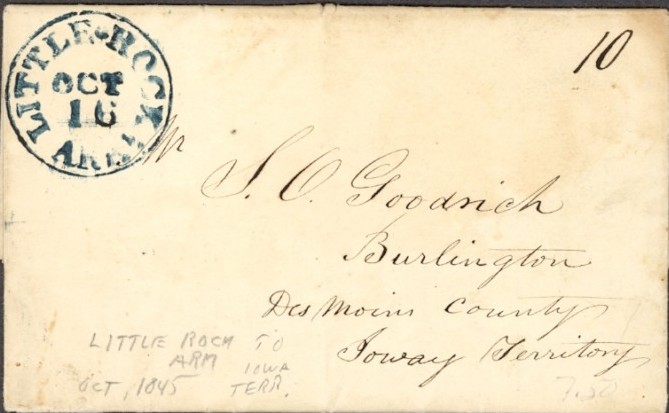 LITTLE ROCK
OCT
16
ARK.
10
Mr
S. O. Goodrich
Burlington
Des Moins County
Ioway Territory
LITTLE ROCK TO
ARM IOWA
OCT, 1845 TERR.
7.50